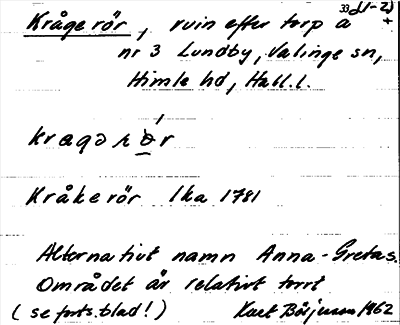 33d(1-2)
Kråge rör, ruin efter torp å +
nr 3 Lundby, Valinge sn,
Himle hd, Hall.l.
Kråkerör lka 1781
Alternativt namn Anna-Gretas.
Området är relativt torrt
(se forts.blad!) Kurt Börjesson 1962